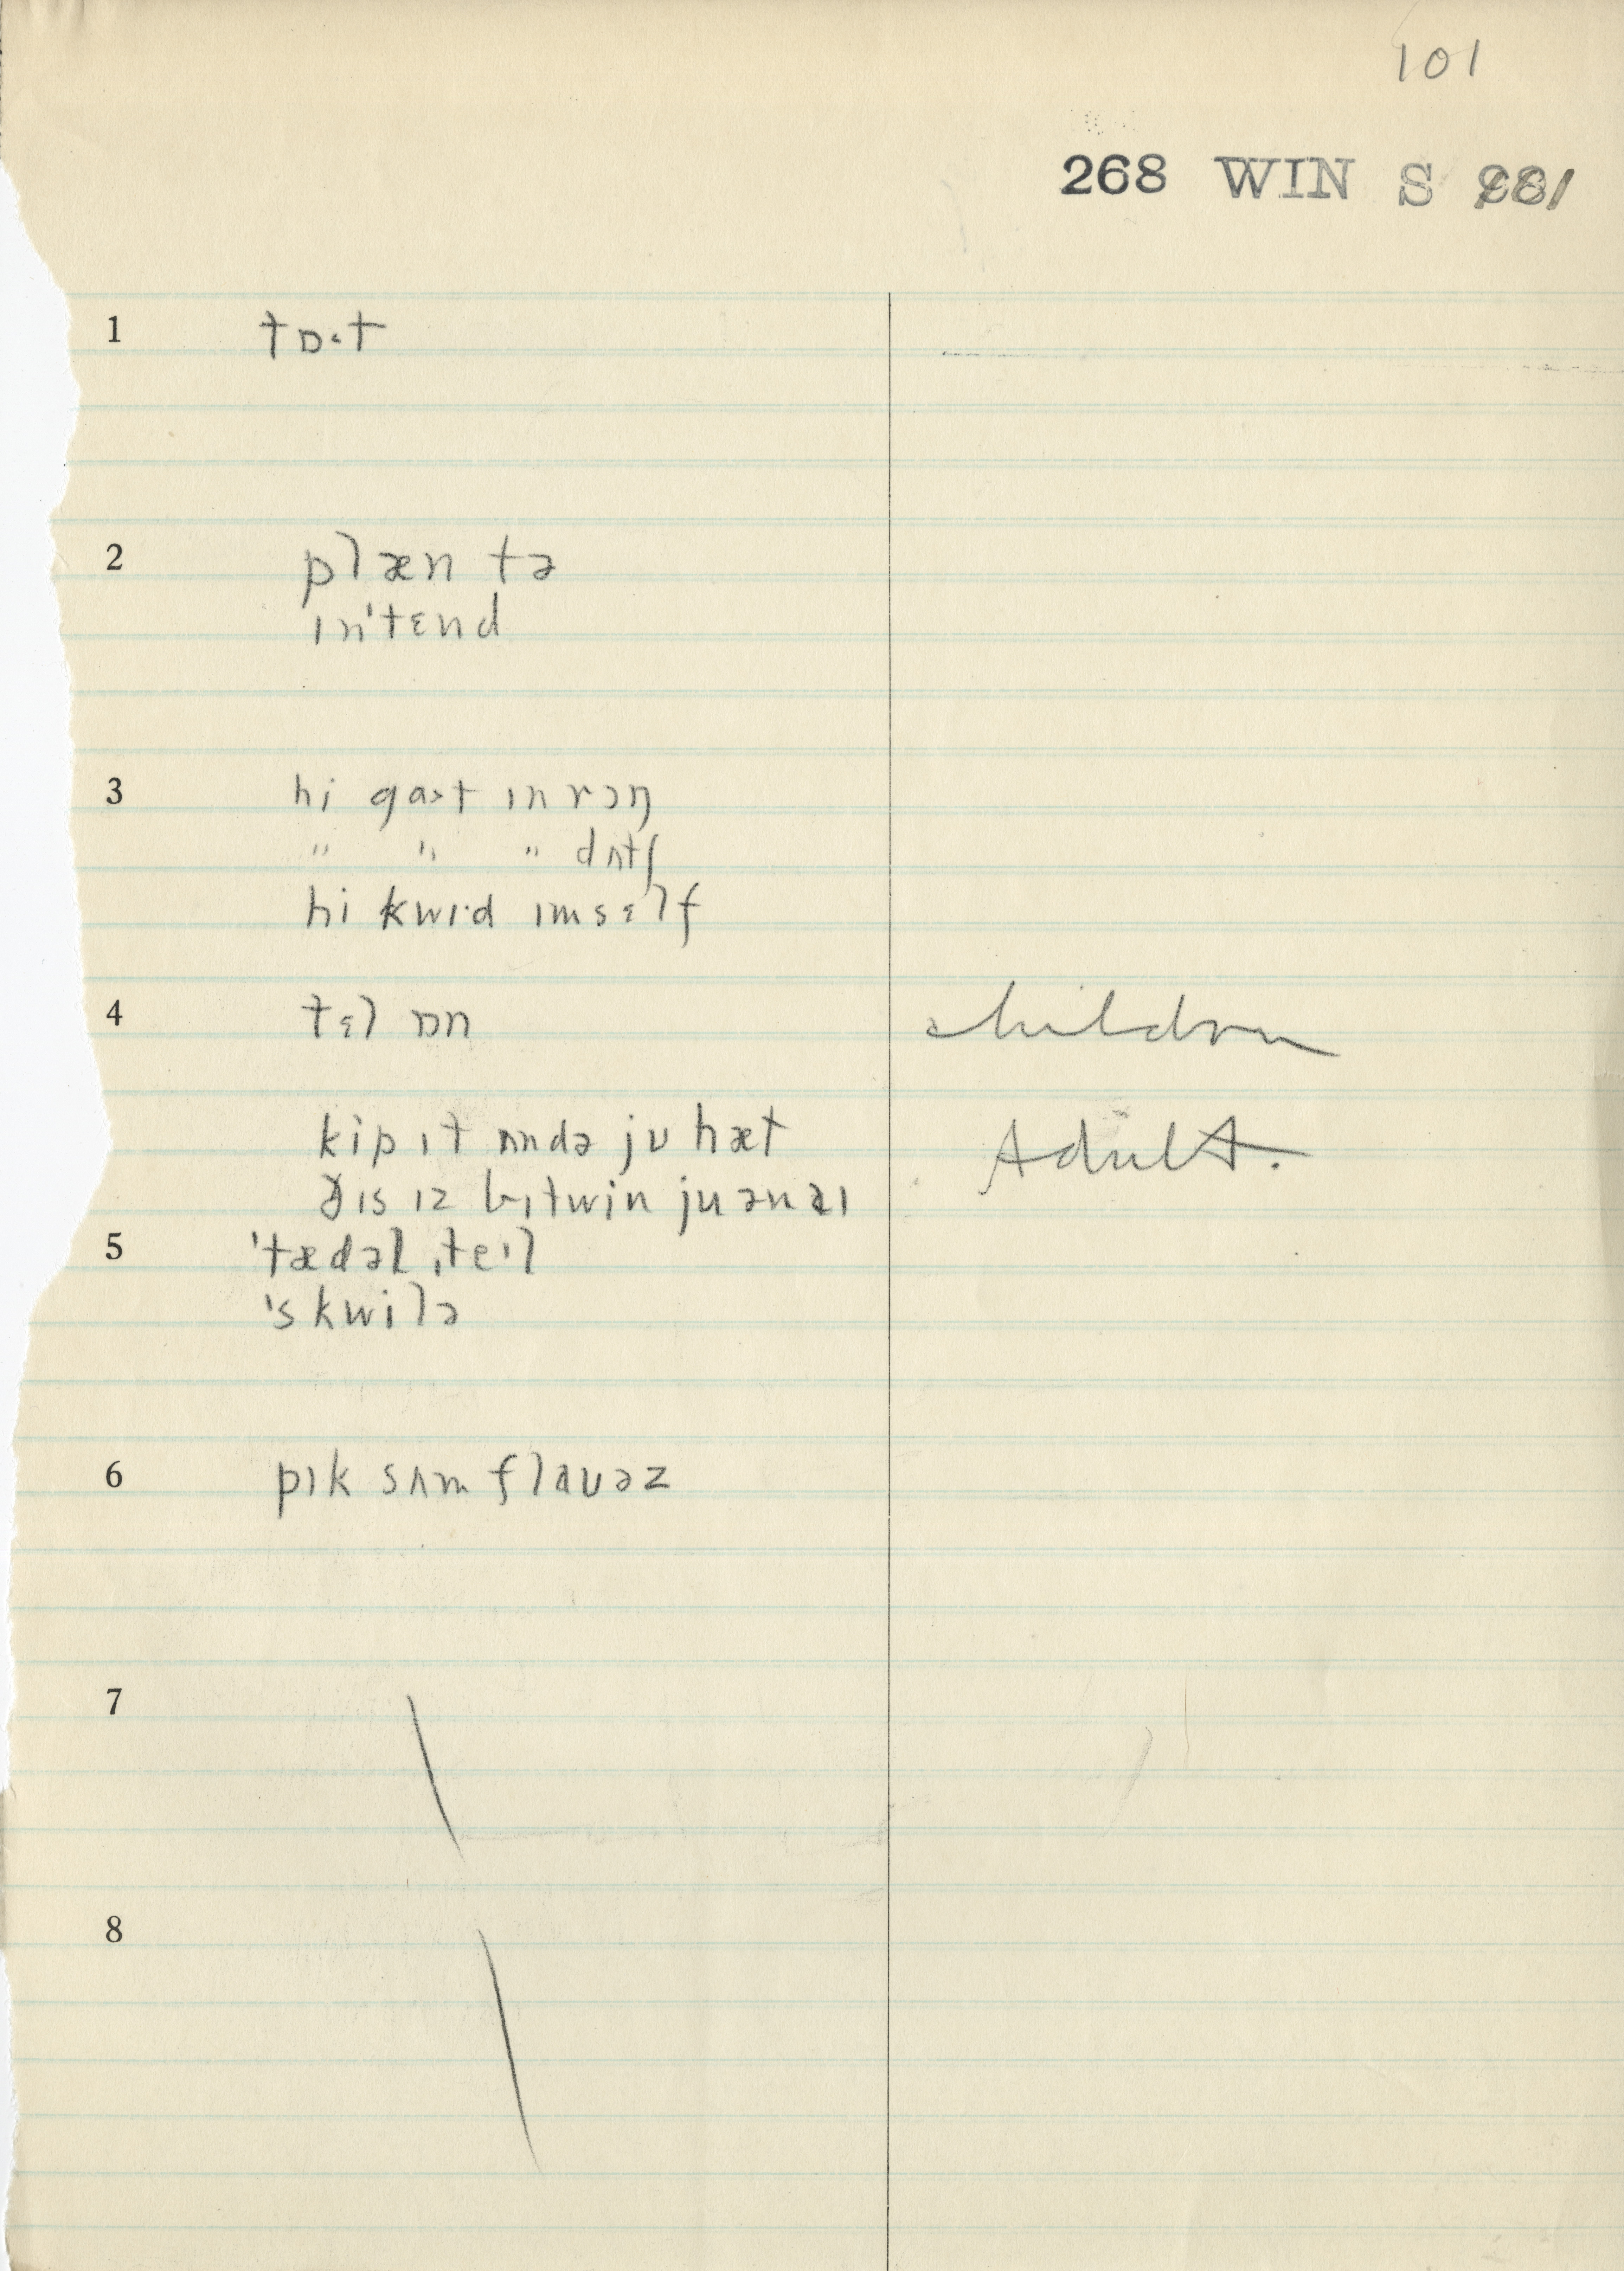 101
268 WIN S
1 tɒ˞t
2 plæn tə
ɪn'tɛnd
3 hi gɑ>t ɪn rɔŋ
" " " dʌtʃ
hi kwɪ·d ɪmsɛlf
4 tɛl ɒn children
kip ɪt ʌndə jʊ hæt Adult.
ðɪs ɪz bɪtwin ju ən aɪ
5 'tædəl ˌteɪl
'skwilə
6 pɪk sʌm flaʊəz
7 \
8 \